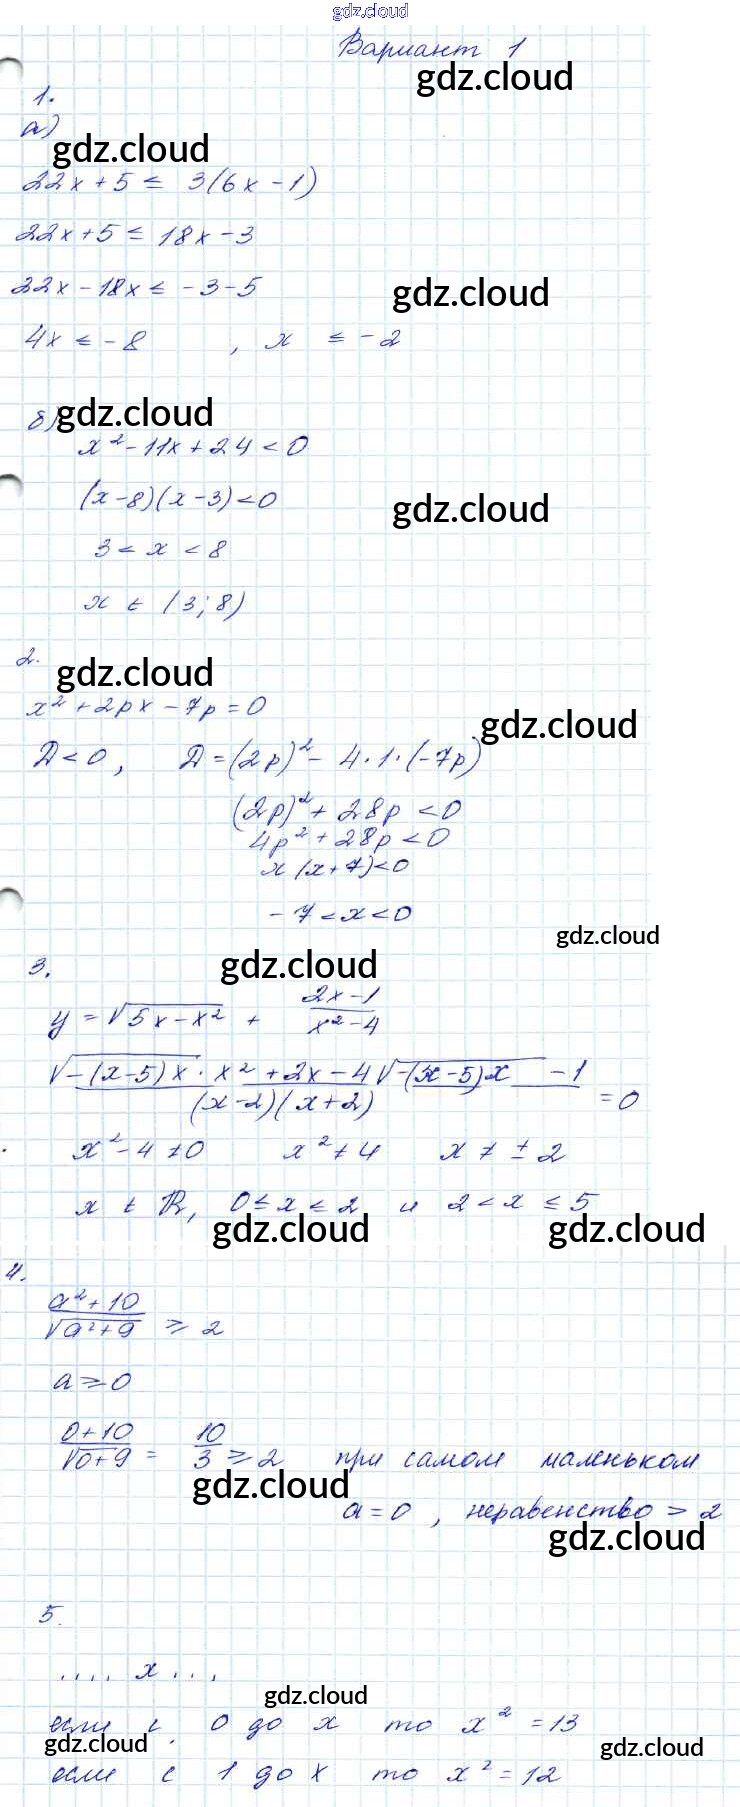 gdz.cloud
Вариант 1
gdz.cloud
1.
а)
gdz.cloud
22x + 5 ≤ 3(6x - 1)
22x + 5 ≤ 18x - 3
22x - 18x ≤ -3 - 5
gdz.cloud
4x ≤ -8 , x ≤ -2
б)
gdz.cloud
x² - 11x + 24 < 0
(x - 8)(x - 3) < 0
gdz.cloud
3 < x < 8
x ∈ (3; 8)
2.
gdz.cloud
x² + 2px - 7p = 0
gdz.cloud
D < 0, D = (2p)² - 4 · 1 · (-7p)
(2p)² + 28p < 0
4p² + 28p < 0
x(x + 7) < 0
-7 < x < 0
gdz.cloud
3.
gdz.cloud
y = √(5x - x²) + (2x - 1)/(x² - 4)
(√(-(x - 5)x) · x² + 2x - 4√(-(x - 5)x) - 1)/((x - 2)(x + 2)) = 0
x² - 4 ≠ 0 x² ≠ 4 x ≠ ± 2
x ∈ ℝ, 0 ≤ x ≤ 2 и 2 < x ≤ 5
gdz.cloud gdz.cloud
4.
(a² + 10)/√(a² + 9) ≥ 2
a ≥ 0
(0 + 10)/√(0 + 9) = 10/3 ≥ 2 при самом маленьком
gdz.cloud
a = 0, неравенство > 2
gdz.cloud
5.
.... x ...
gdz.cloud
если с 0 до x то x² = 13
gdz.cloud gdz.cloud
если с 1 до x то x² = 12